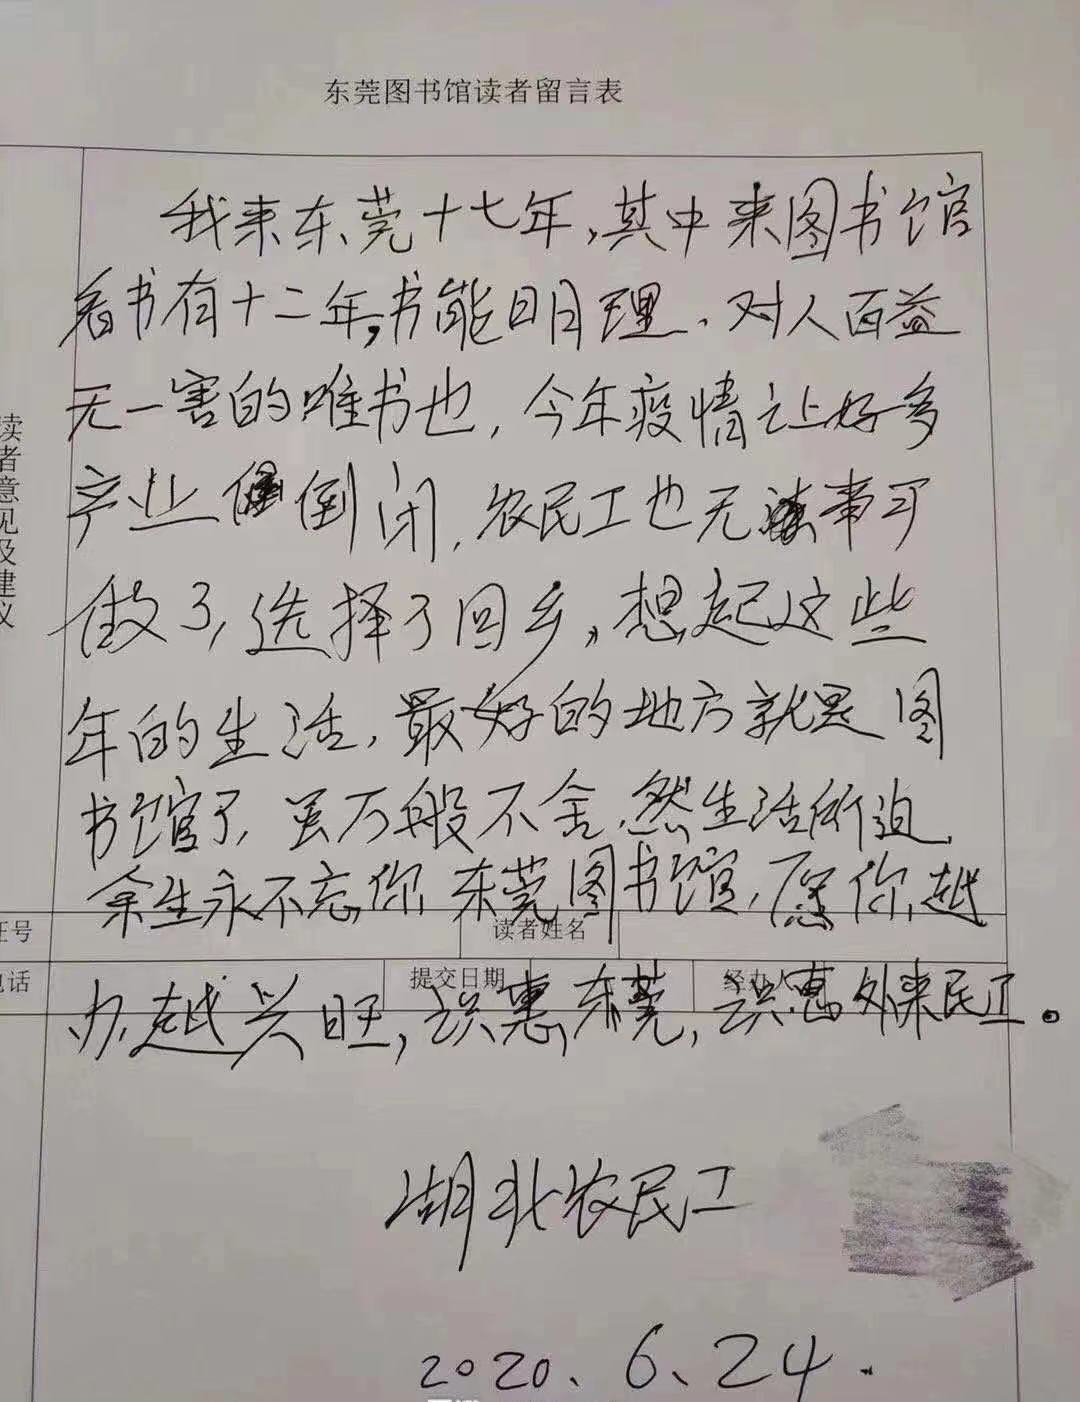 东莞图书馆读者留言表
我来东莞十七年,其中来图书馆
看书有十二年,书能明理、对人百益
无一害的唯书也,今年疫情让好多
产业倒闭,农民工也无事可
做了,选择了回乡,想起这些
年的生活,最好的地方就是图
书馆了,虽万般不舍,然生活所迫,
余生永不忘你,东莞图书馆,愿你越
办越兴旺,识惠东莞,识惠外来民工。
读者意见及建议
证号
读者姓名
电话
提交日期
经办人
湖北农民工
2020、6、24.